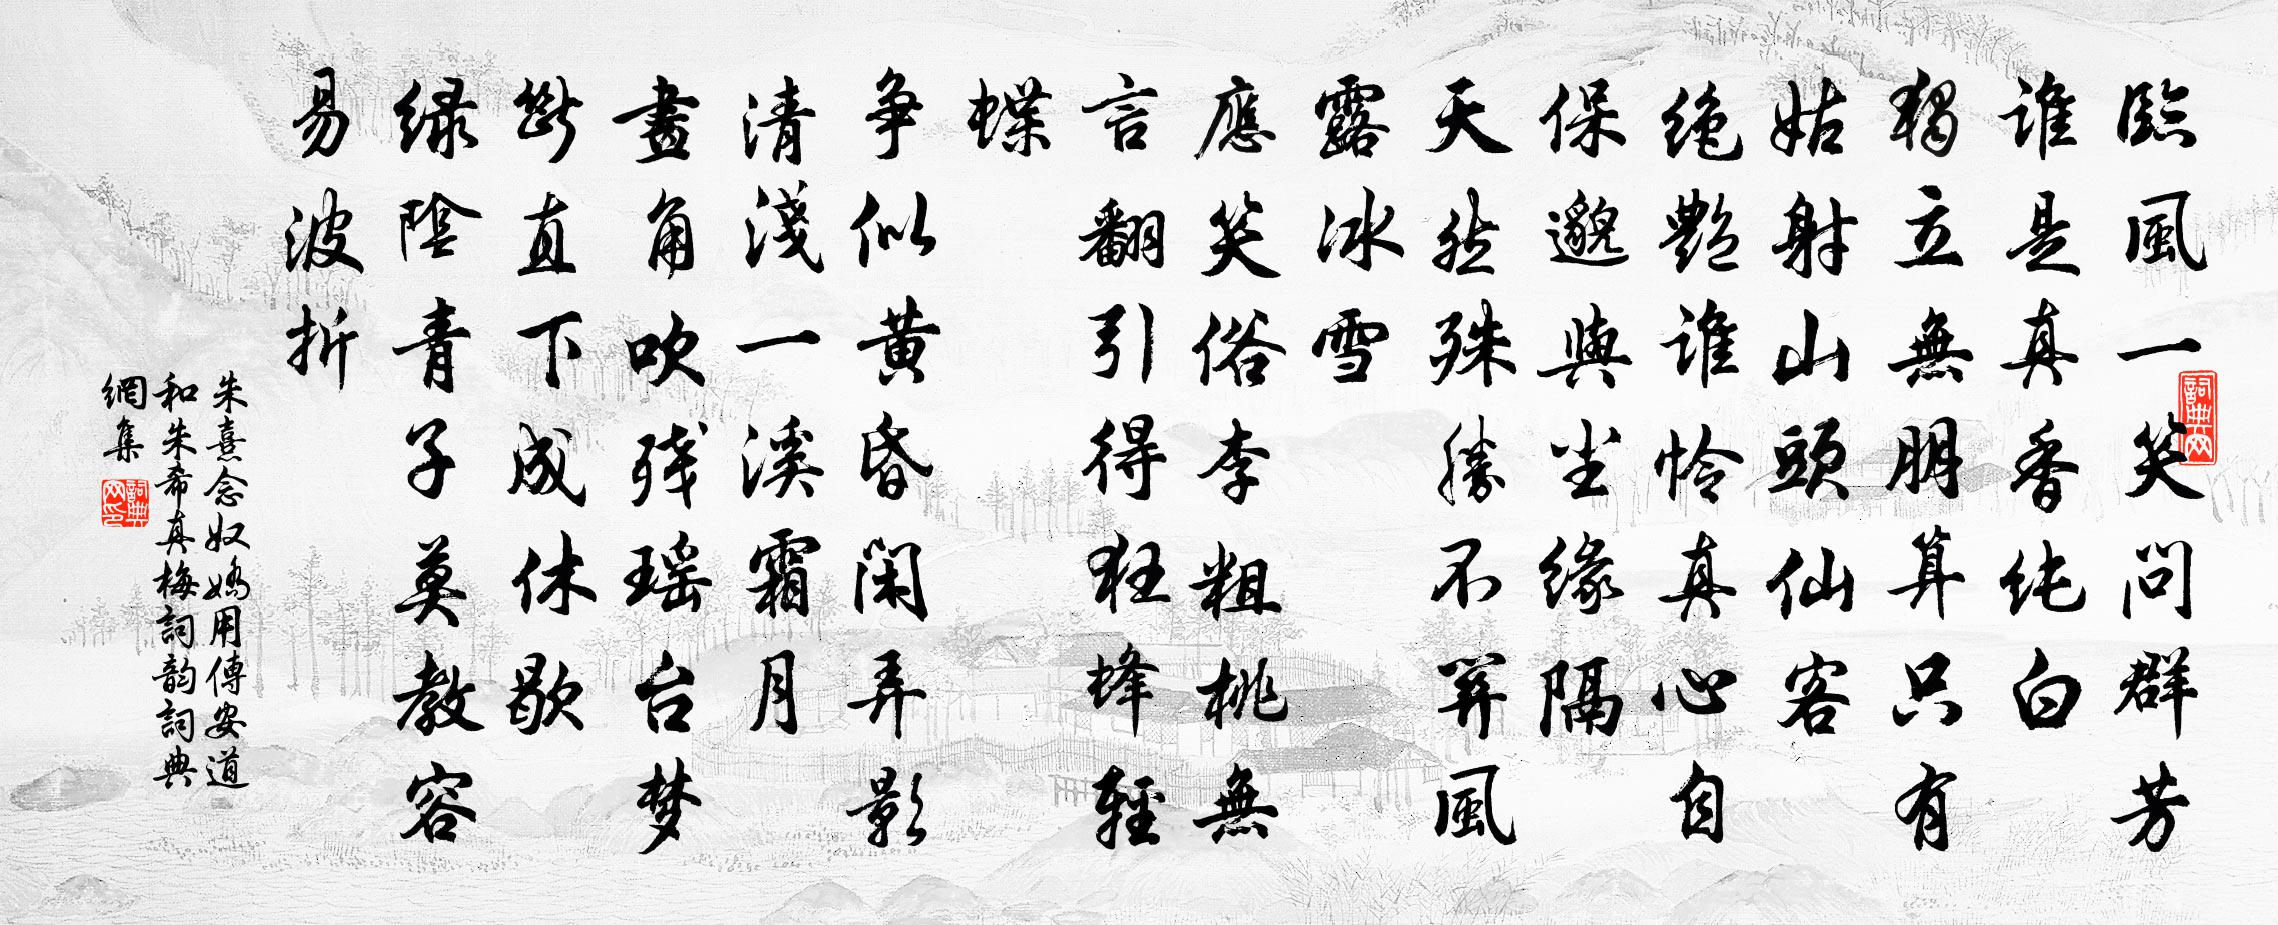 臨風一笑問群芳
谁是真香纯白
獨立無朋算只有
姑射山頭仙客
绝艷谁怜真心自
保邈與尘缘隔
天然殊勝不関風
露冰雪
應笑俗李粗桃無
言翻引得狂蜂輕
蝶
争似黄昏闲弄影
清淺一溪霜月
畫角吹残瑶台梦
斷直下成休歇
绿陰青子莫教容
易波折
朱熹念奴嬌用傳安道
和朱希真梅詞韵詞典
網集
詞典网
詞典网印